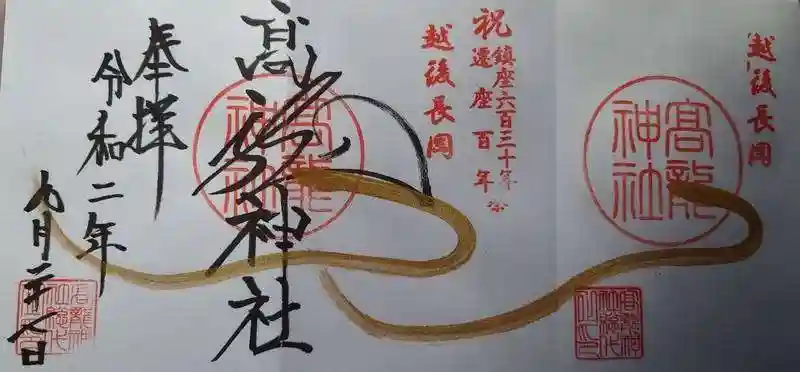 越後長岡
高龍神社
祝
鎮座六百三十年
遷座百年
越後長岡
高龍神社
高龍神社
奉拝
令和二年
九月二十七日